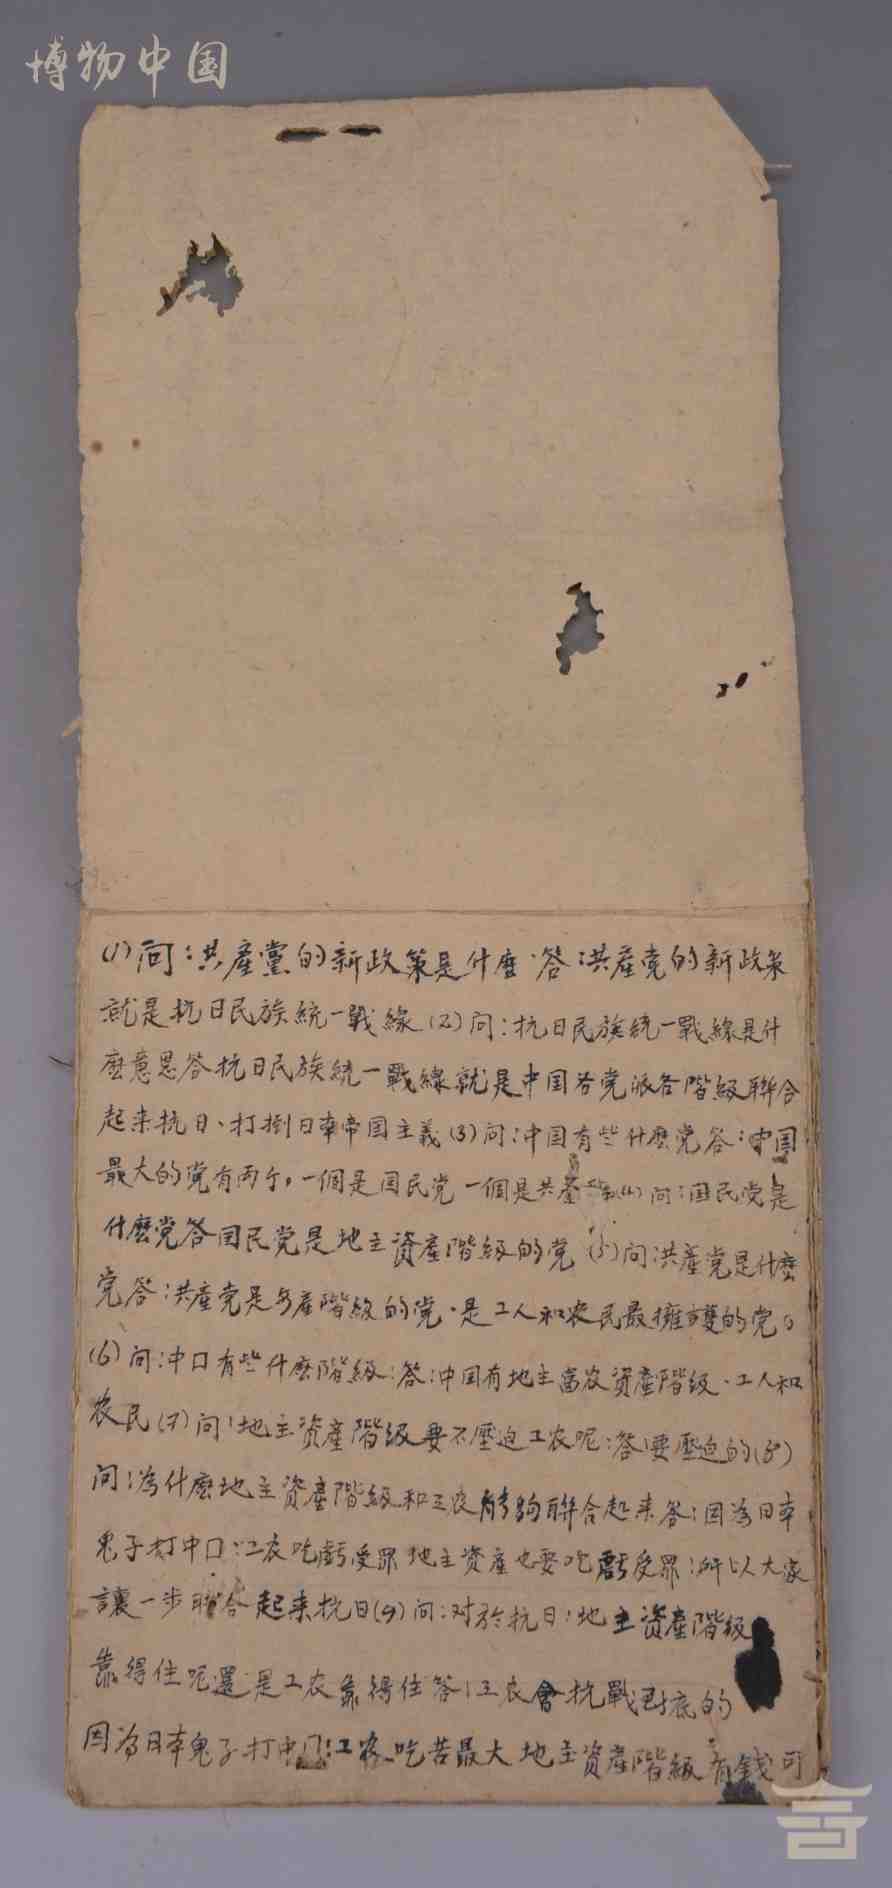 博物中国
(1)问：共產黨的新政策是什麽．答：共產党的新政策
就是抗日民族統一戰線(2)问：抗日民族統一戰線是什
麽意思答抗日民族統一戰線就是中国各党派各階級聯合
起来抗日、打倒日本帝国主義(3)问：中国有些什麽党答：中国
最大的党有两个。一個是国民党一個是共產(4)问：国民党是
什麽党答国民党是地主資產階級的党(5)问共產党是什麽
党答：共產党是无產階級的党．是工人和农民最擁護的党。
(6)问：中口有些什麽階級：答：中国有地主富农資產階級．工人和
农民(7)问：地主資產階級要不壓迫工农呢：答：要壓迫的(8)
问：為什麽地主資產階級和工农能夠聯合起来答：因為日本
鬼子打中口：工农吃虧受罪地主資產也要吃虧受罪：所以大家
讓一步聯合起来抗日(9)问：对於抗日：地主資產階級
靠得住呢還是工农靠得住答：工农會抗戰到底的
因為日本鬼子打中口：工农吃苦最大地主資產階級有錢可